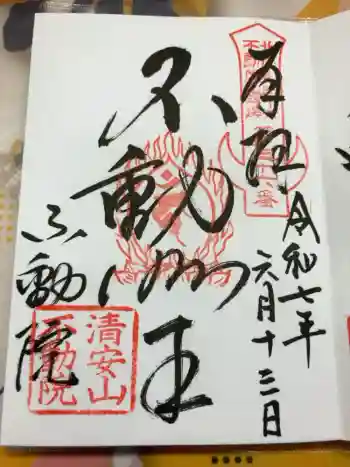 奉拝
令和七年
六月十三日
不動明王
不動院
清安山
不動院